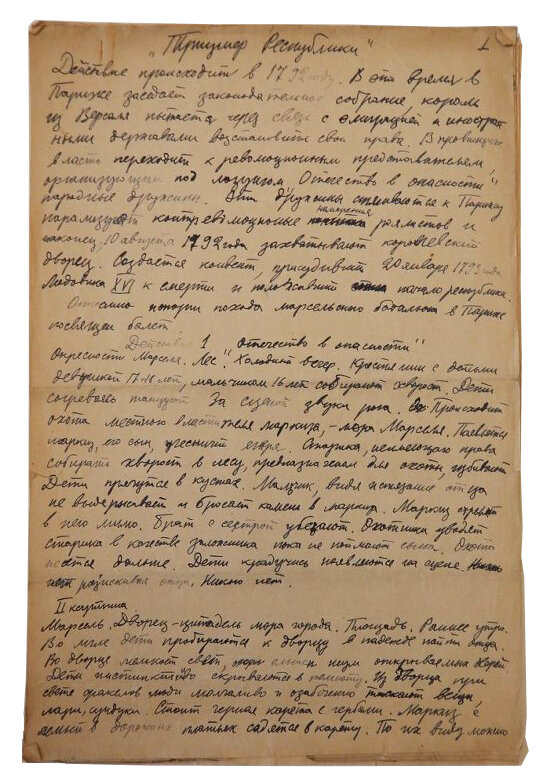 „Триумф Республики" 1
Действие происходит в 1792 году. В это время в
Париже заседает законодательное собрание, король
из Версаля пытается через связь с эмиграцией и иностран
ными державами восстановить свои права. В провинциях
власть переходит к революционным представителям
организующим под лозунгом „Отечество в опасности"
народные дружины. Эти дружины стягиваются к Парижу
парализуют контрреволюционные намерения роялистов и
наконец 10 августа 1792 года захватывают королевский
дворец. Создается конвент, присудивший 20 января 1793 года
Людовика XVI к смерти и положивший начало республики.
истории похода марсельского батальона в Париж
посвящен балет.
Действие 1 „отечество в опасности"
Окресности Марселя. Лес. Холодный вечер. Крестьянин с детьми
девушкой 17-18 лет, мальчиком 16 лет собирают хворост. Дети
согреваясь танцуют. За сценой звуки рога. Происходит
охота местного властителя маркиза, - мэра Марселя. Появляется
маркиз, его сын, егеря. Старика, неимеющего права
собирать хворост в лесу, предназначенном для охоты, избивают
Дети прячутся в кустах. Мальчик, видя истязание отца
не выдерживает и бросает камень в маркиза. Маркиз стреляет
в него мимо. Брат с сестрой убегают. Охотники уводят
старика в качестве заложника пока не поймают сына. Охота
несется дальше. Дети крадучись появляются на сцене.
разыскивая отца. Никого нет.
II картина
Марсель. Дворец-цитадель мэра города. Площадь. Раннее утро.
Во мгле дети пробираются к дворцу в надежде найти отца.
Во дворце мелькает свет,
Дети скрываются в темноту. Из дворца при
свете факелов люди молчаливо и озабоченно таскают вещи,
лари, сундуки. Стоит черная карета с гербами. Маркиз с
семьей в дорожных платьях садятся в карету. По их виду можно